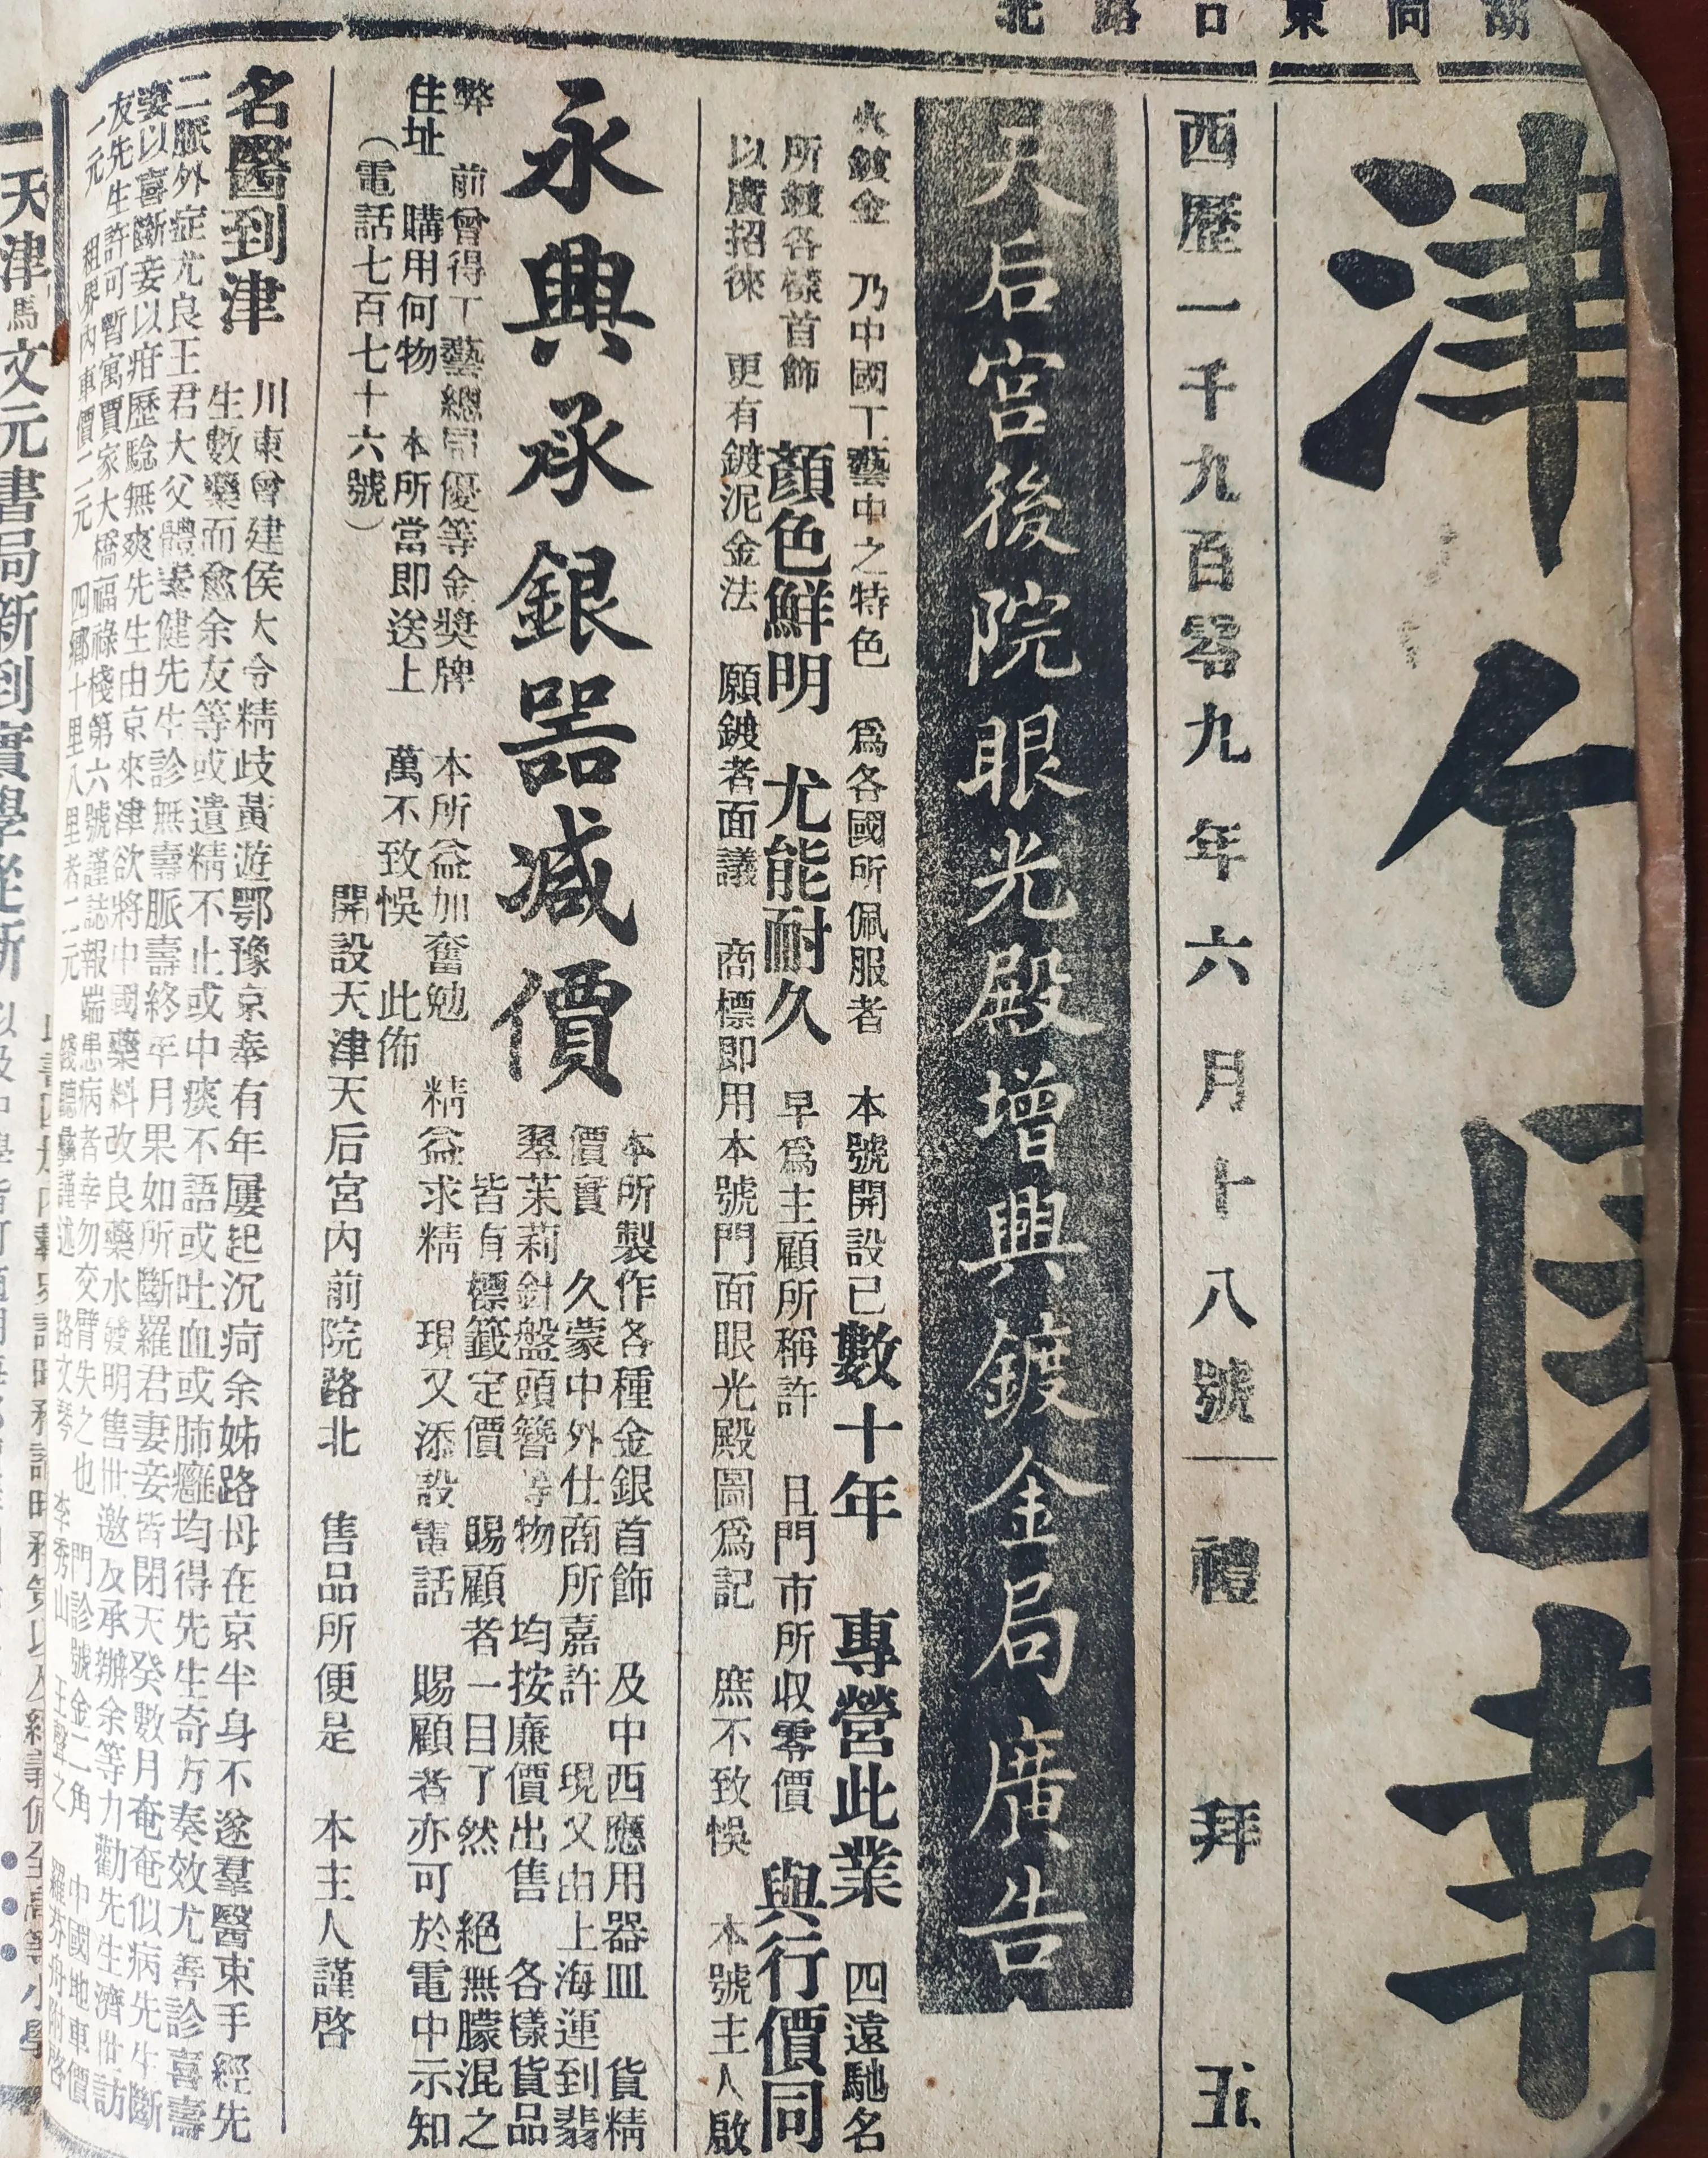 西歷一千九百零九年六月十八號 禮拜五
天后宮後院眼光殿增興鍍金局廣告
火鍍金 乃中國工藝中之特色 爲各國所佩服者 本號開設已數十年 專營此業 四遠馳名
所鍍各樣首飾 顏色鮮明 尤能耐久 早爲主顧所稱許 且門市所收零價 與行價同
以廣招徠 更有鍍泥金法 願鍍者面議 商標即用本號門面眼光殿圖爲記 庶不致悞 本號主人啟
永興承銀器減價
本所製作各種金銀首飾 及中西應用器皿 貨精
價實 久蒙中外仕商所嘉許 現又由上海運到翡
翠茉莉針盤頭簪等物 均按廉價出售 各樣貨品
皆有標籤定價 賜顧者一目了然 絕無朦混之
弊 前曾得工藝總局優等金獎牌 本所益加奮勉 精益求精 現又添設電話 賜顧者亦可於電中示知
住址 購用何物 本所當即送上 萬不致悞 此佈
(電話七百七十六號) 開設天津天后宮內前院路北 售品所便是 本主人謹啓
名醫到津
川東曾建侯大令精歧黃遊鄂豫京奉有年屢起沉疴余姊路母在京半身不遂羣醫束手經先
生數藥而愈余友等或遺精不止或中痰不語或吐血或肺癰均得先生奇方奏效尤善診喜壽
二脈外症尤良王君大父體素健先生診無壽脈壽終年月果如所斷羅君妻妾皆閉天癸數月奄奄似病先生斷
妻以喜斷妾以疳歷驗無爽先生由京來津欲將中國藥料改良藥水發明售世邀友承辦余等力勸先生濟世訪
友先生許可暫寓賈家大橋福祿棧第六號謹誌報端患病者幸勿交臂失之也 門診號金二角 中國地車價
一元 租界內車價二元 四鄉十里八里者二元 路文琴 李秀山 王聲之 羅芬舟附啓
天津馬文元書局新到實學從新